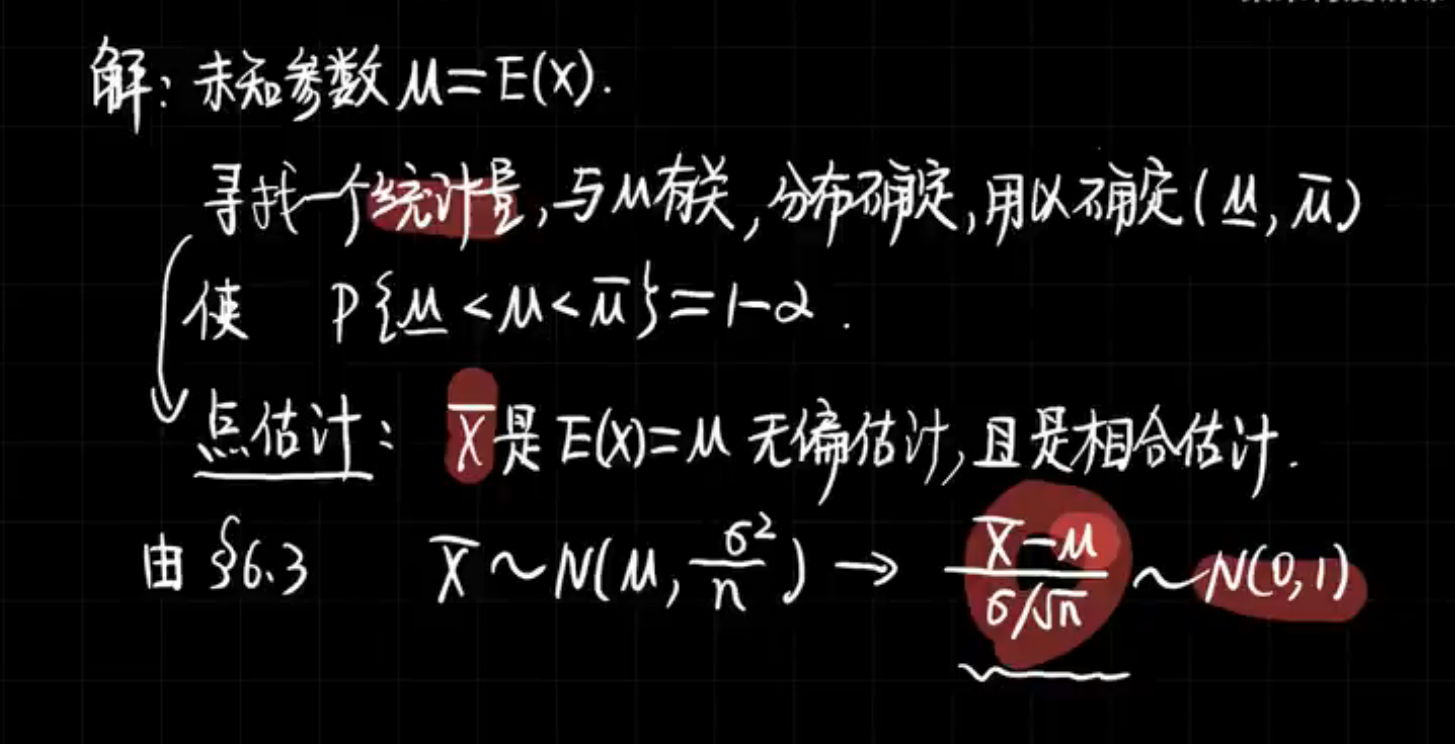 解：未知参数 μ=E(X).
寻找一个统计量,与μ有关,分布确定,用以确定(μ̲, μ̄)
使 P{μ̲<μ<μ̄}=1-α.
点估计： X̄是E(X)=μ 无偏估计,且是相合估计.
由§6.3 X̄~N(μ, σ²/n) → (X̄-μ)/(σ/√n) ~N(0,1)